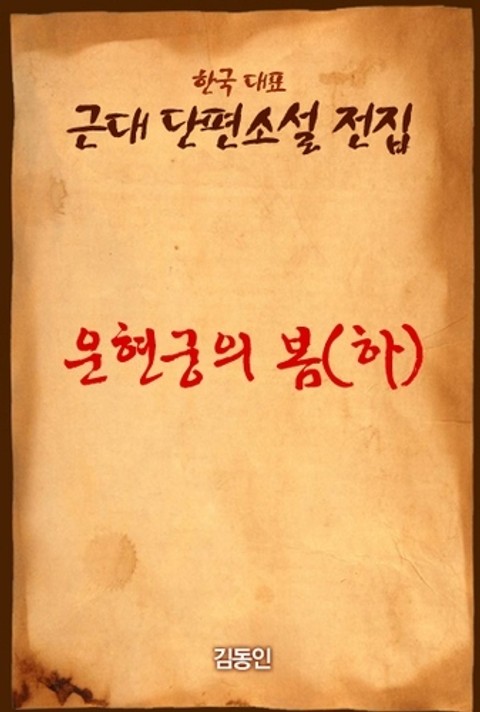 한국 대표
근대 단편소설 전집
운현궁의 봄(하)
김동인